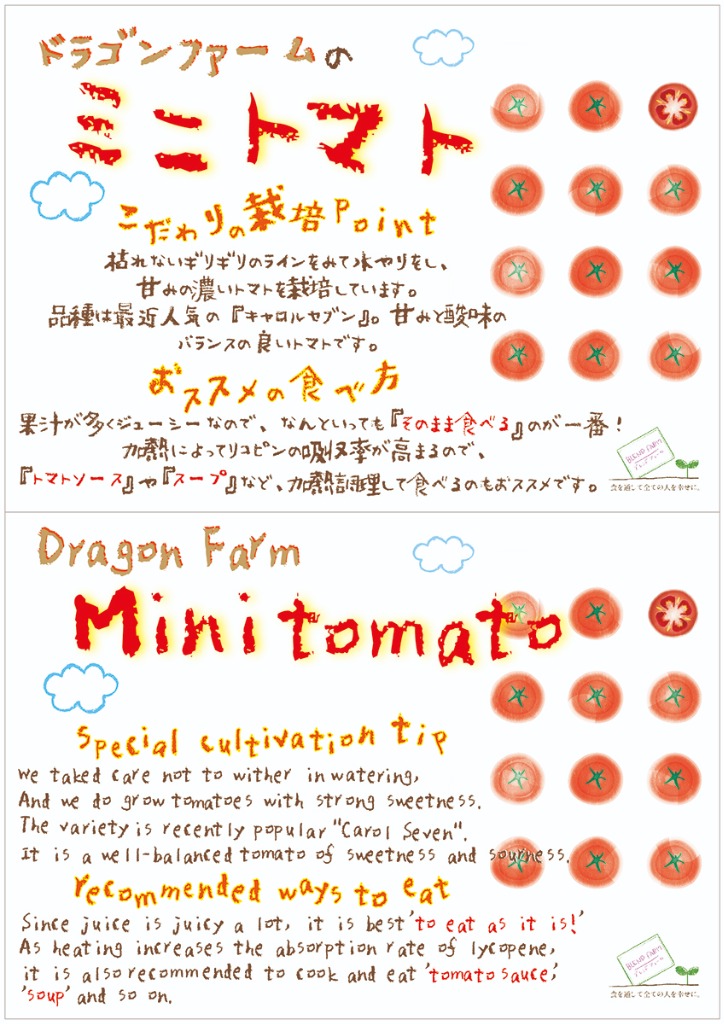 ドラゴンファームの
ミニトマト
こだわりの栽培Point
枯れないギリギリのラインをみて水やりをし、
甘みの濃いトマトを栽培しています。
品種は最近人気の『キャロルセブン』。甘みと酸味の
バランスの良いトマトです。
おススメの食べ方
果汁が多くジューシーなので、なんといっても『そのまま食べる』のが一番!
加熱によってリコピンの吸収率が高まるので、
『トマトソース』や『スープ』など、加熱調理して食べるのもおススメです。
食を通して全ての人を幸せに。
Dragon Farm
Mini tomato
Special cultivation tip
We taked care not to wither in watering,
And we do grow tomatoes with strong sweetness.
The variety is recently popular "Carol Seven".
It is a well-balanced tomato of sweetness and sourness.
recommended ways to eat
Since juice is juicy a lot, it is best 'to eat as it is!'
As heating increases the absorption rate of lycopene,
it is also recommended to cook and eat 'tomato sauce',
'soup' and so on.
食を通して全ての人を幸せに。